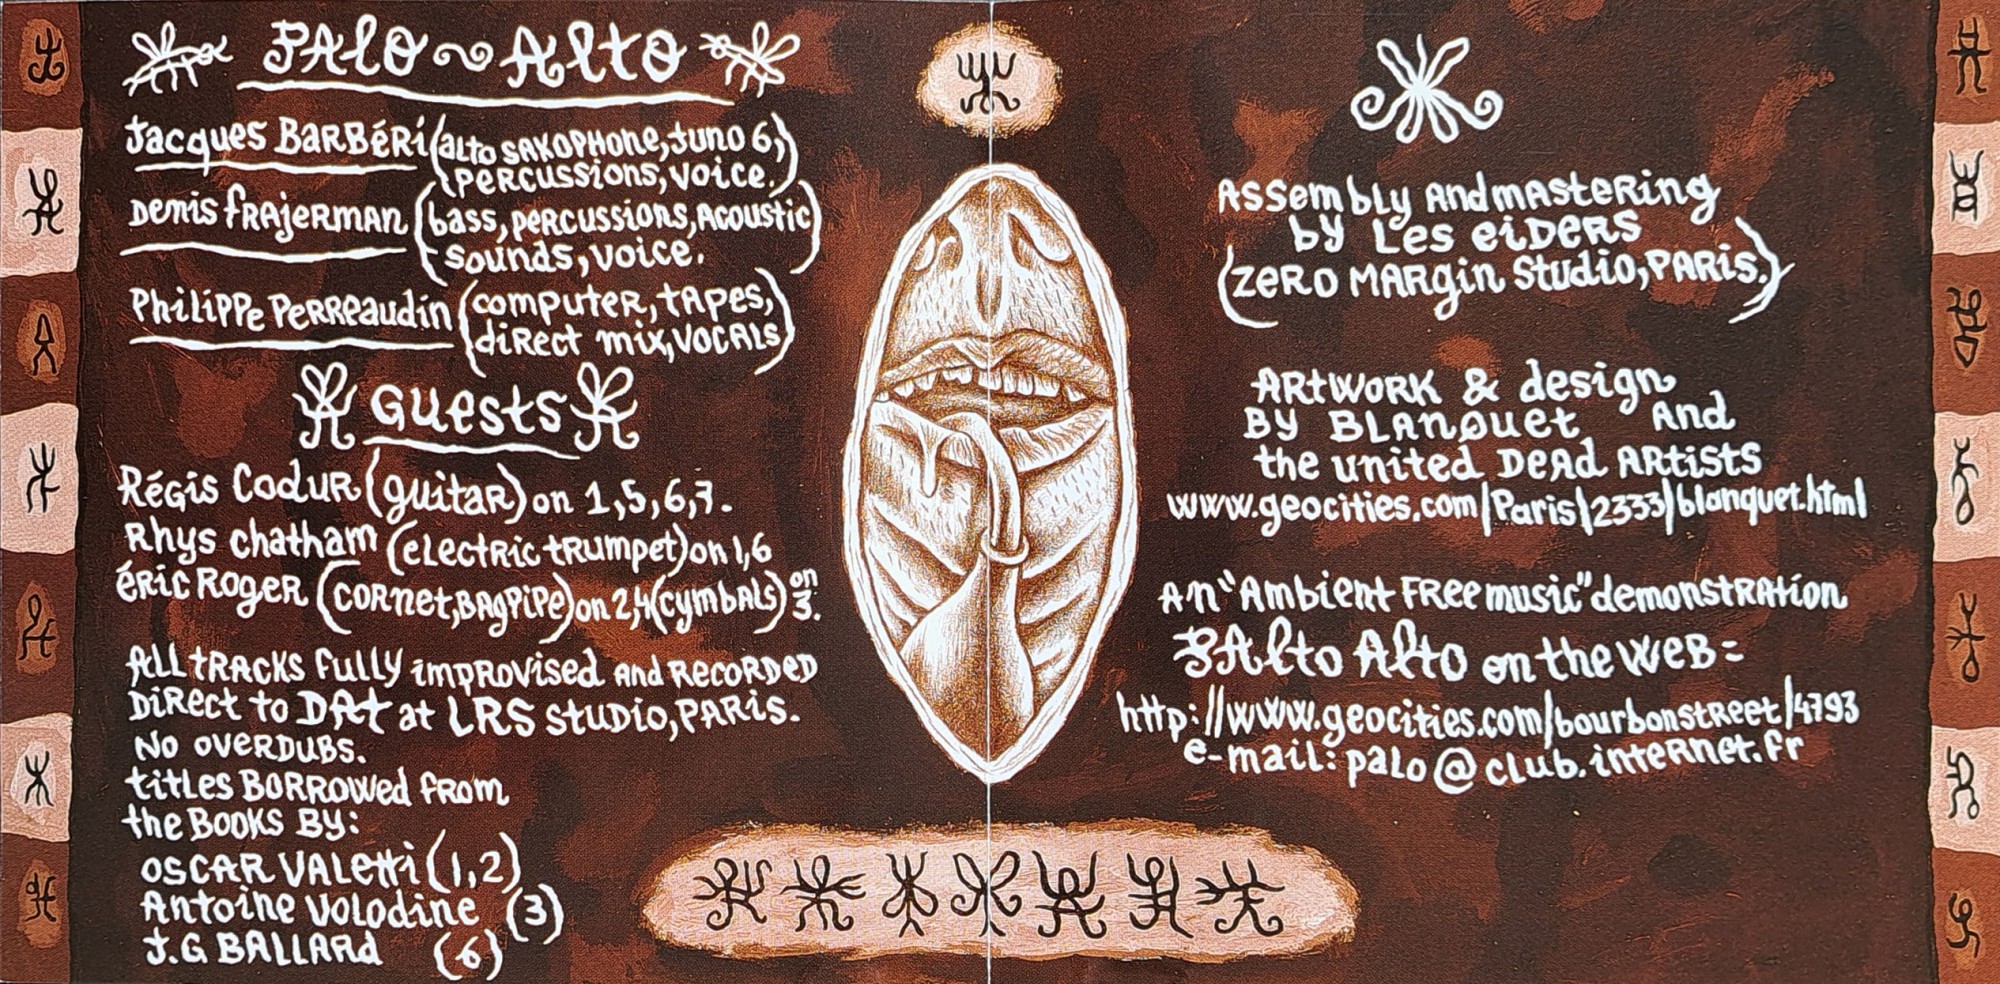 PAlo ~ Alto
Jacques BarBéri (alto saxophone, Juno 6,)
percussions, voice.)
Denis Frajerman (bass, percussions, acoustic)
sounds, voice.
Philippe Perreaudin (computer, tapes,)
direct mix, vocals)
Guests
Régis Codur (guitar) on 1,5,6,7.
Rhys Chatham (electric trumpet) on 1,6
Éric Roger (cornet, bagpipe) on 2,4 (cymbals) on 3.
All tracks fully improvised and recorded
direct to DAt at LRS studio, Paris.
No overdubs.
titles borrowed from
the books by:
Oscar Valetti (1,2)
Antoine Volodine (3)
J.G BALLARD (6)
Assembly and mastering
by Les eiders
(Zero Margin Studio, Paris.)
Artwork & design
by Blanquet and
the united Dead Artists
www.geocities.com/Paris/2333/blanquet.html
An "Ambient Free music" demonstration
PAlto Alto on the web =
http://www.geocities.com/bourbonstreet/4793
e-mail: palo@club.internet.fr